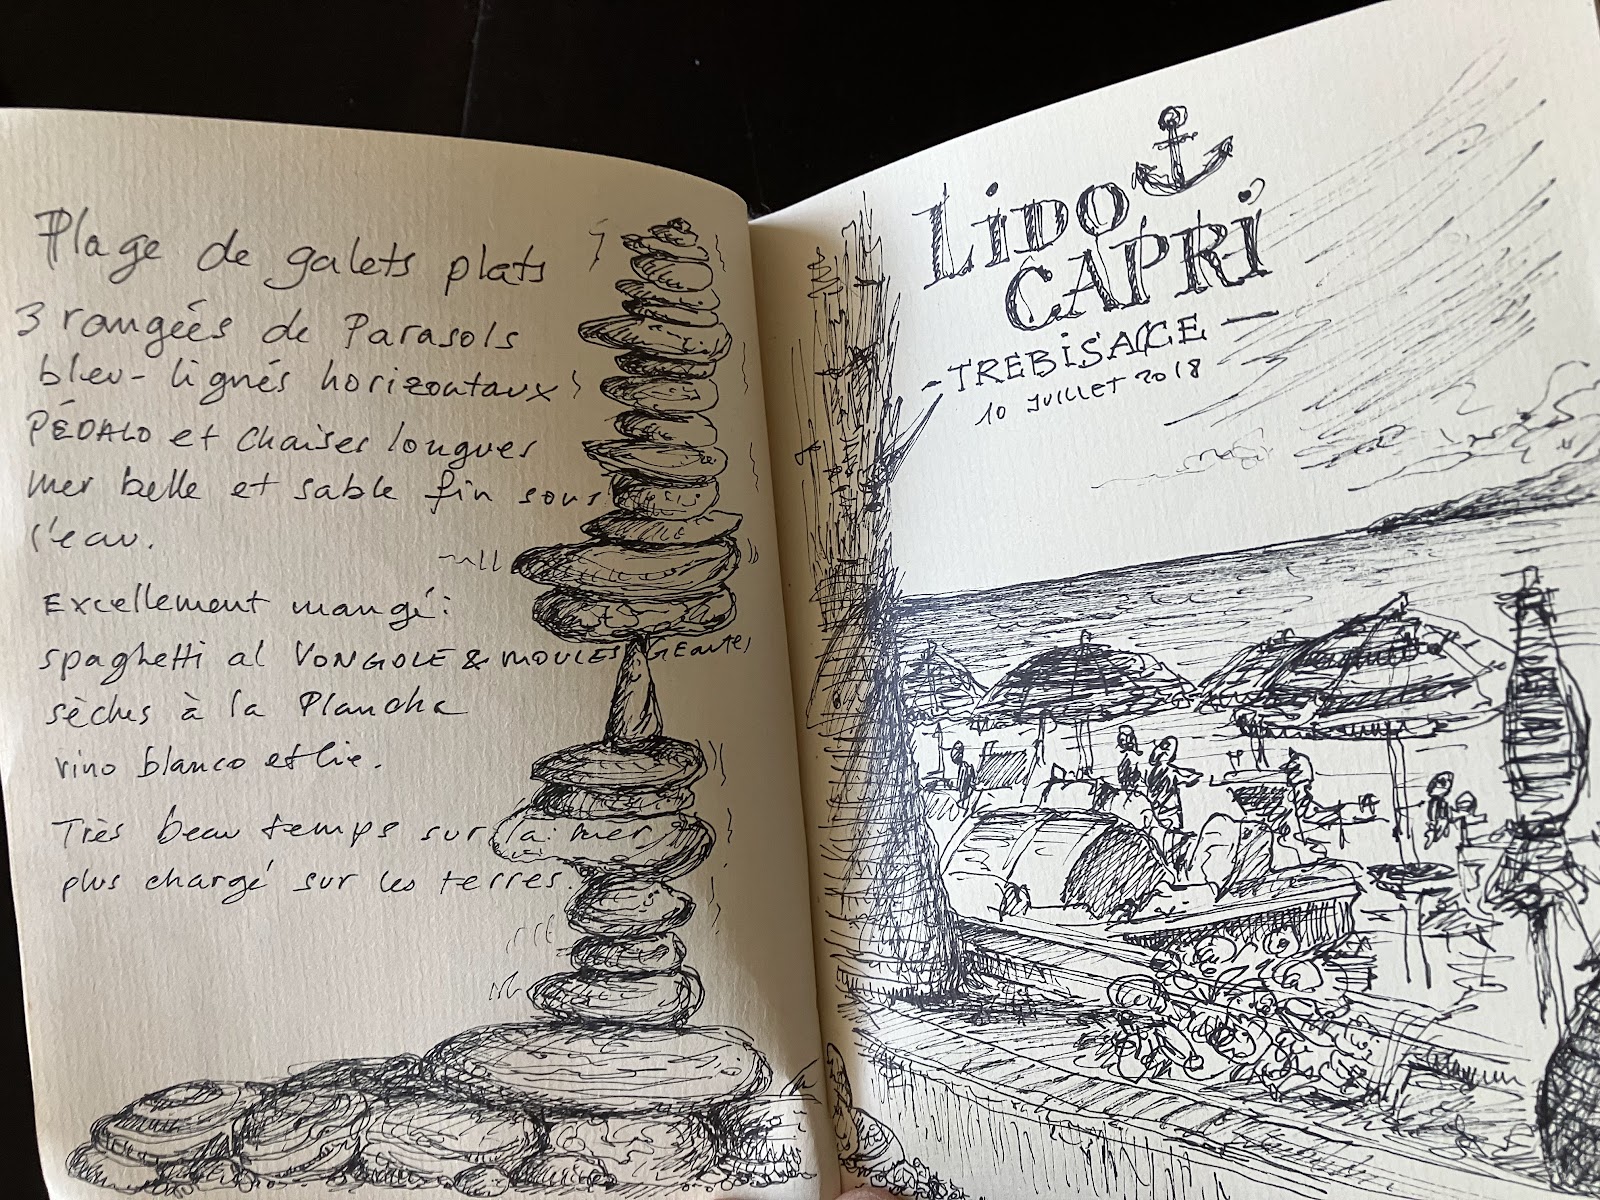 Plage de galets plats
3 rangées de Parasols
bleu - lignés horizontaux
PÉDALO et chaises longues
mer belle et sable fin sous
l'eau.
Excellement mangé:
spaghetti al VONGOLE & MOULES GEANTES
sèches à la Plancha
vino blanco
Très beau temps sur la mer
plus chargé sur les terres.
LiDO
CAPRi
- TREBiSACCE -
10 JUILLET 2018